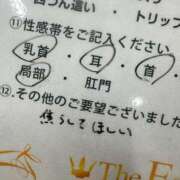 四つん這い ・ トリップ
⑪性感帯をご記入ください
乳首 ・ 耳 ・ 首
局部 ・ 肛門
⑫.その他のご要望ございまし
焦らしてほしい
The E